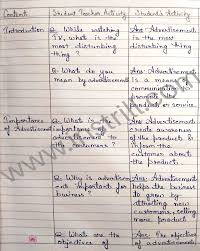 Content
Student Teacher Activity
Student's Activity
Introduction
Q. While watching
T.V., what is the
most disturbing
thing ?
Ans: Advertisement
is the most
disturbing thing
Q. What do you
mean by advertisement
Ans: Advertisement
is a means
communication
promote the
product or service.
Importance
of Advertisement
Q. What is the
importance
advertisement to
the consumers?
Ans: Advertisement
create awareness
of the product &
inform the
customer about
the product.
Q. Why is advertisement
important for
business?
Ans: Advertisement
helps the business
to grow by
attracting new
customers, selling
more product
Q. What are the
objectives of
Ans: The objective
of advertisement